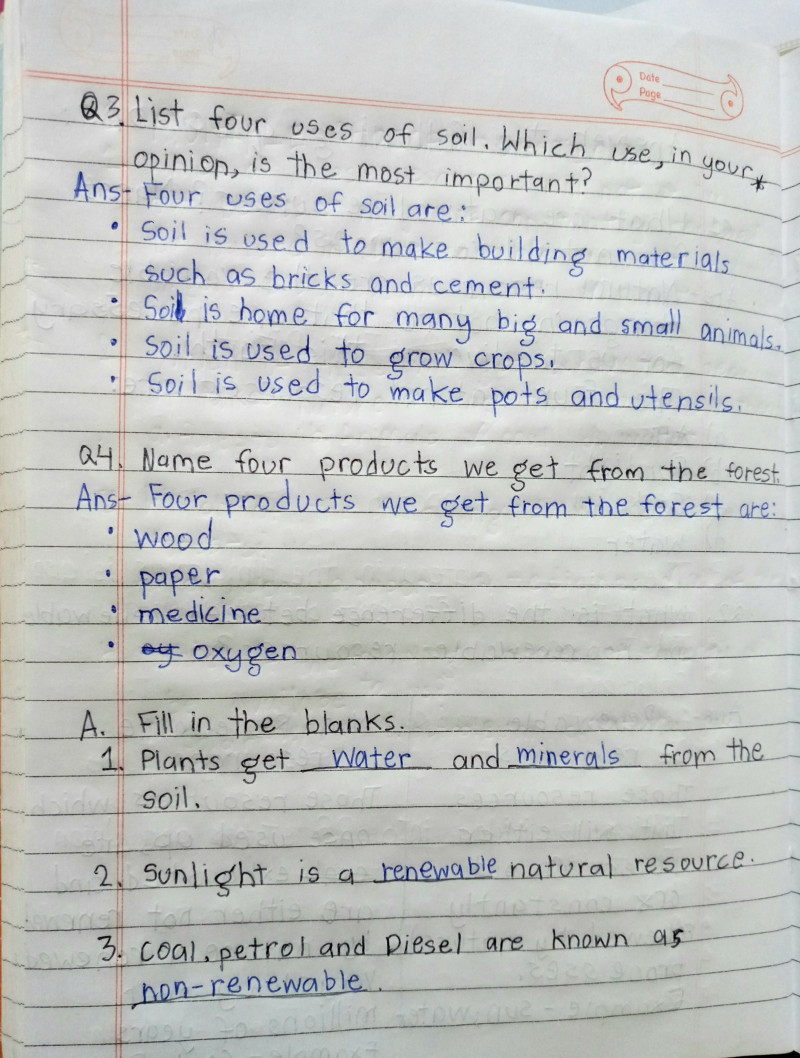 Date
Page
Q3. List four uses of soil. Which use, in your
opinion, is the most important?
Ans- Four uses of soil are:
• Soil is used to make building materials
such as bricks and cement.
• Soil is home for many big and small animals.
• Soil is used to grow crops.
• Soil is used to make pots and utensils.
Q4. Name four products we get from the forest.
Ans- Four products we get from the forest are:
• wood
• paper
• medicine
• oxygen
A. Fill in the blanks.
1. Plants get water and minerals from the
soil.
2. Sunlight is a renewable natural resource.
3. Coal, petrol and Diesel are known as
non-renewable.